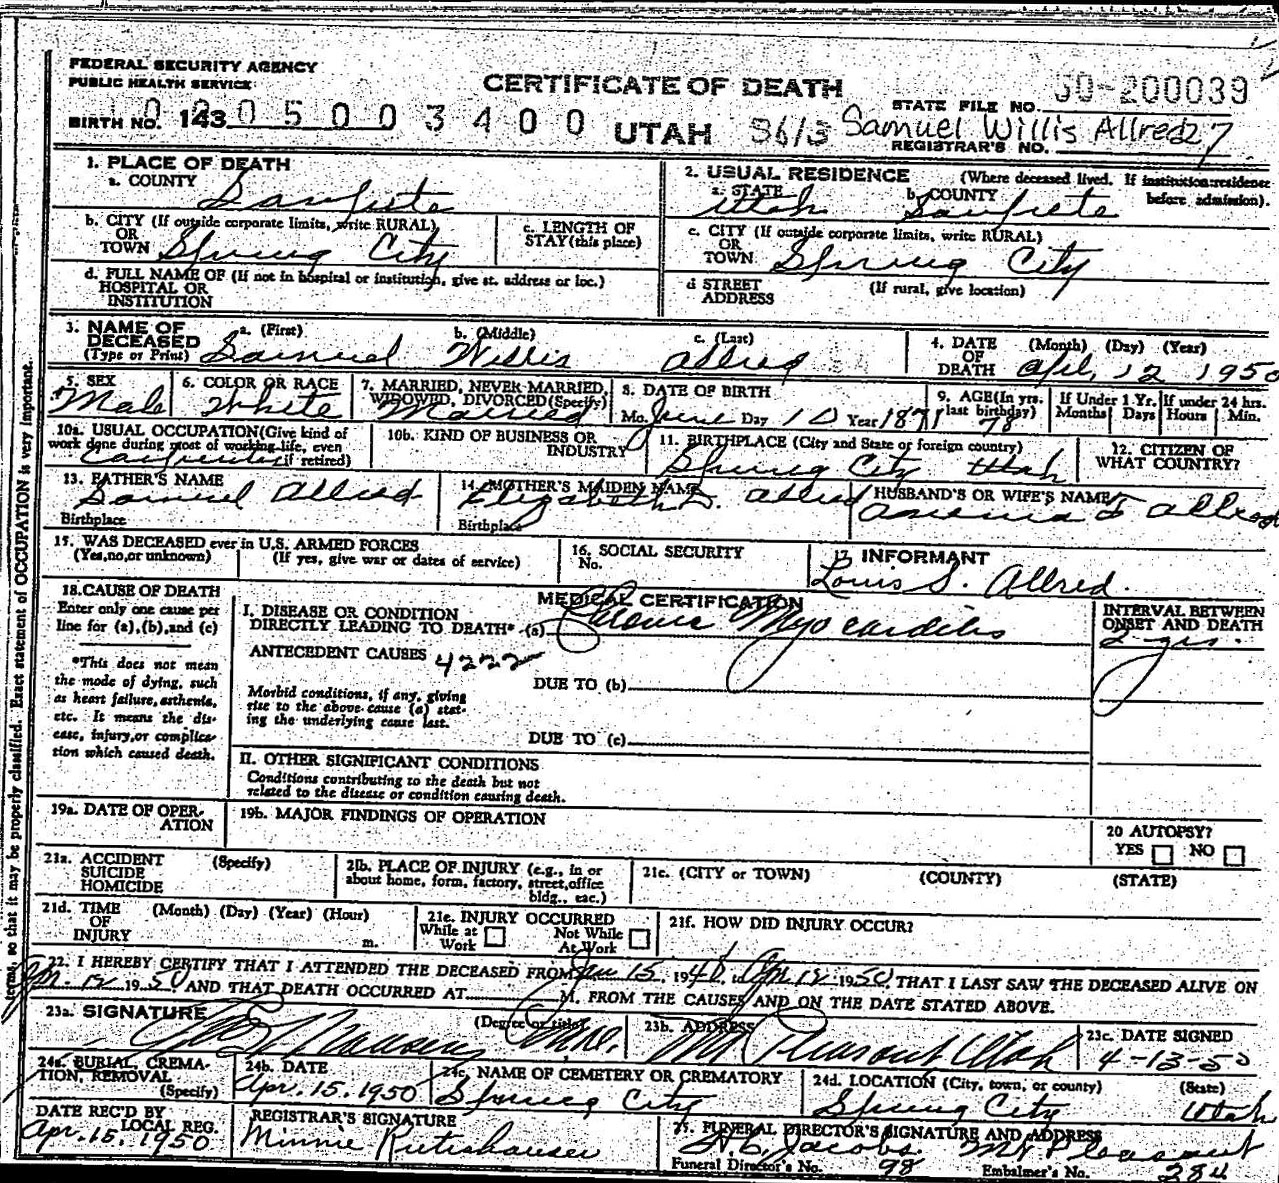 FEDERAL SECURITY AGENCY
PUBLIC HEALTH SERVICE
CERTIFICATE OF DEATH
STATE FILE NO. 50-200039
BIRTH NO. 143 0 5 0 0 3 4 0 0
UTAH
Samuel Willis Allred
REGISTRAR'S NO. 7
1. PLACE OF DEATH
a. COUNTY Sanpete
b. CITY (If outside corporate limits, write RURAL) OR TOWN Spring City
c. LENGTH OF STAY (this place)
d. FULL NAME OF (If not in hospital or institution, give st. address or loc.) HOSPITAL OR INSTITUTION
2. USUAL RESIDENCE (Where deceased lived. If institution: residence before admission).
a. STATE Utah b. COUNTY Sanpete
c. CITY (If outside corporate limits, write RURAL) OR TOWN Spring City
d STREET ADDRESS (If rural, give location)
3. NAME OF DECEASED (Type or Print) a. (First) Samuel b. (Middle) Willis c. (Last) Allred
4. DATE OF DEATH (Month) (Day) (Year) Apl. 12 1950
5. SEX Male
6. COLOR OR RACE White
7. MARRIED, NEVER MARRIED, WIDOWED, DIVORCED (Specify) Married
8. DATE OF BIRTH Mo. June Day 10 Year 1871
9. AGE (In yrs. last birthday) 78
If Under 1 Yr. Months Days
If under 24 hrs. Hours Min.
10a. USUAL OCCUPATION (Give kind of work done during most of working life, even if retired) Carpenter
10b. KIND OF BUSINESS OR INDUSTRY
11. BIRTHPLACE (City and State or foreign country) Spring City Utah
12. CITIZEN OF WHAT COUNTRY?
13. FATHER'S NAME Samuel Allred
Birthplace
14. MOTHER'S MAIDEN NAME Elizabeth Allred
Birthplace
HUSBAND'S OR WIFE'S NAME Allred
15. WAS DECEASED ever in U.S. ARMED FORCES
(Yes, no, or unknown) (If yes, give war or dates of service)
16. SOCIAL SECURITY No.
17 INFORMANT
Louis S. Allred.
18. CAUSE OF DEATH
Enter only one cause per line for (a), (b), and (c)
*This does not mean the mode of dying, such as heart failure, asthenia, etc. It means the disease, injury, or complication which caused death.
MEDICAL CERTIFICATION
I. DISEASE OR CONDITION DIRECTLY LEADING TO DEATH* (a) Chronic Myocarditis
INTERVAL BETWEEN ONSET AND DEATH
2 yrs.
ANTECEDENT CAUSES 4222
DUE TO (b)
Morbid conditions, if any, giving rise to the above cause (a) stating the underlying cause last.
DUE TO (c)
II. OTHER SIGNIFICANT CONDITIONS
Conditions contributing to the death but not related to the disease or condition causing death.
19a. DATE OF OPERATION
19b. MAJOR FINDINGS OF OPERATION
20 AUTOPSY?
YES NO
21a. ACCIDENT SUICIDE HOMICIDE (Specify)
21b. PLACE OF INJURY (e.g., in or about home, form, factory, street, office bldg., etc.)
21c. (CITY or TOWN) (COUNTY) (STATE)
21d. TIME OF INJURY (Month) (Day) (Year) (Hour) m.
21e. INJURY OCCURRED While at Work Not While At Work
21f. HOW DID INJURY OCCUR?
22. I HEREBY CERTIFY THAT I ATTENDED THE DECEASED FROM Jan 15, 194 Apr 12 1950, THAT I LAST SAW THE DECEASED ALIVE ON
12 1950 AND THAT DEATH OCCURRED AT M. FROM THE CAUSES AND ON THE DATE STATED ABOVE.
23a. SIGNATURE (Degree or title)
23b. ADDRESS Mt Pleasant Utah
23c. DATE SIGNED
4-13-50
24a. BURIAL, CREMATION, REMOVAL (Specify)
24b. DATE
Apr. 15. 1950
24c. NAME OF CEMETERY OR CREMATORY
Spring City
24d. LOCATION (City, town, or county) (State)
Spring City Utah
DATE REC'D BY LOCAL REG.
Apr. 15. 1950
REGISTRAR'S SIGNATURE
Minnie
25. FUNERAL DIRECTOR'S SIGNATURE AND ADDRESS
Jacobs. Mt Pleasant
Funeral Director's No. 98 Embalmer's No. 284
terms, so that it may be properly classified. Exact statement of OCCUPATION is very important.